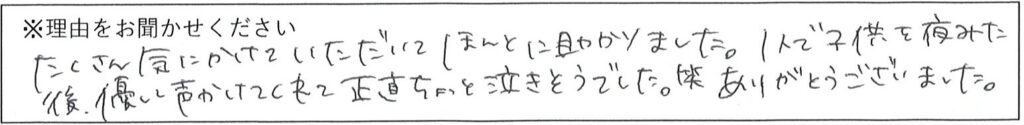 ※理由をお聞かせください
たくさん気にかけていただいてほんとに助かりました。1人で子供を夜みた
後、優しい声かけてくれて正直ちょっと泣きそうでした。笑 ありがとうございました。